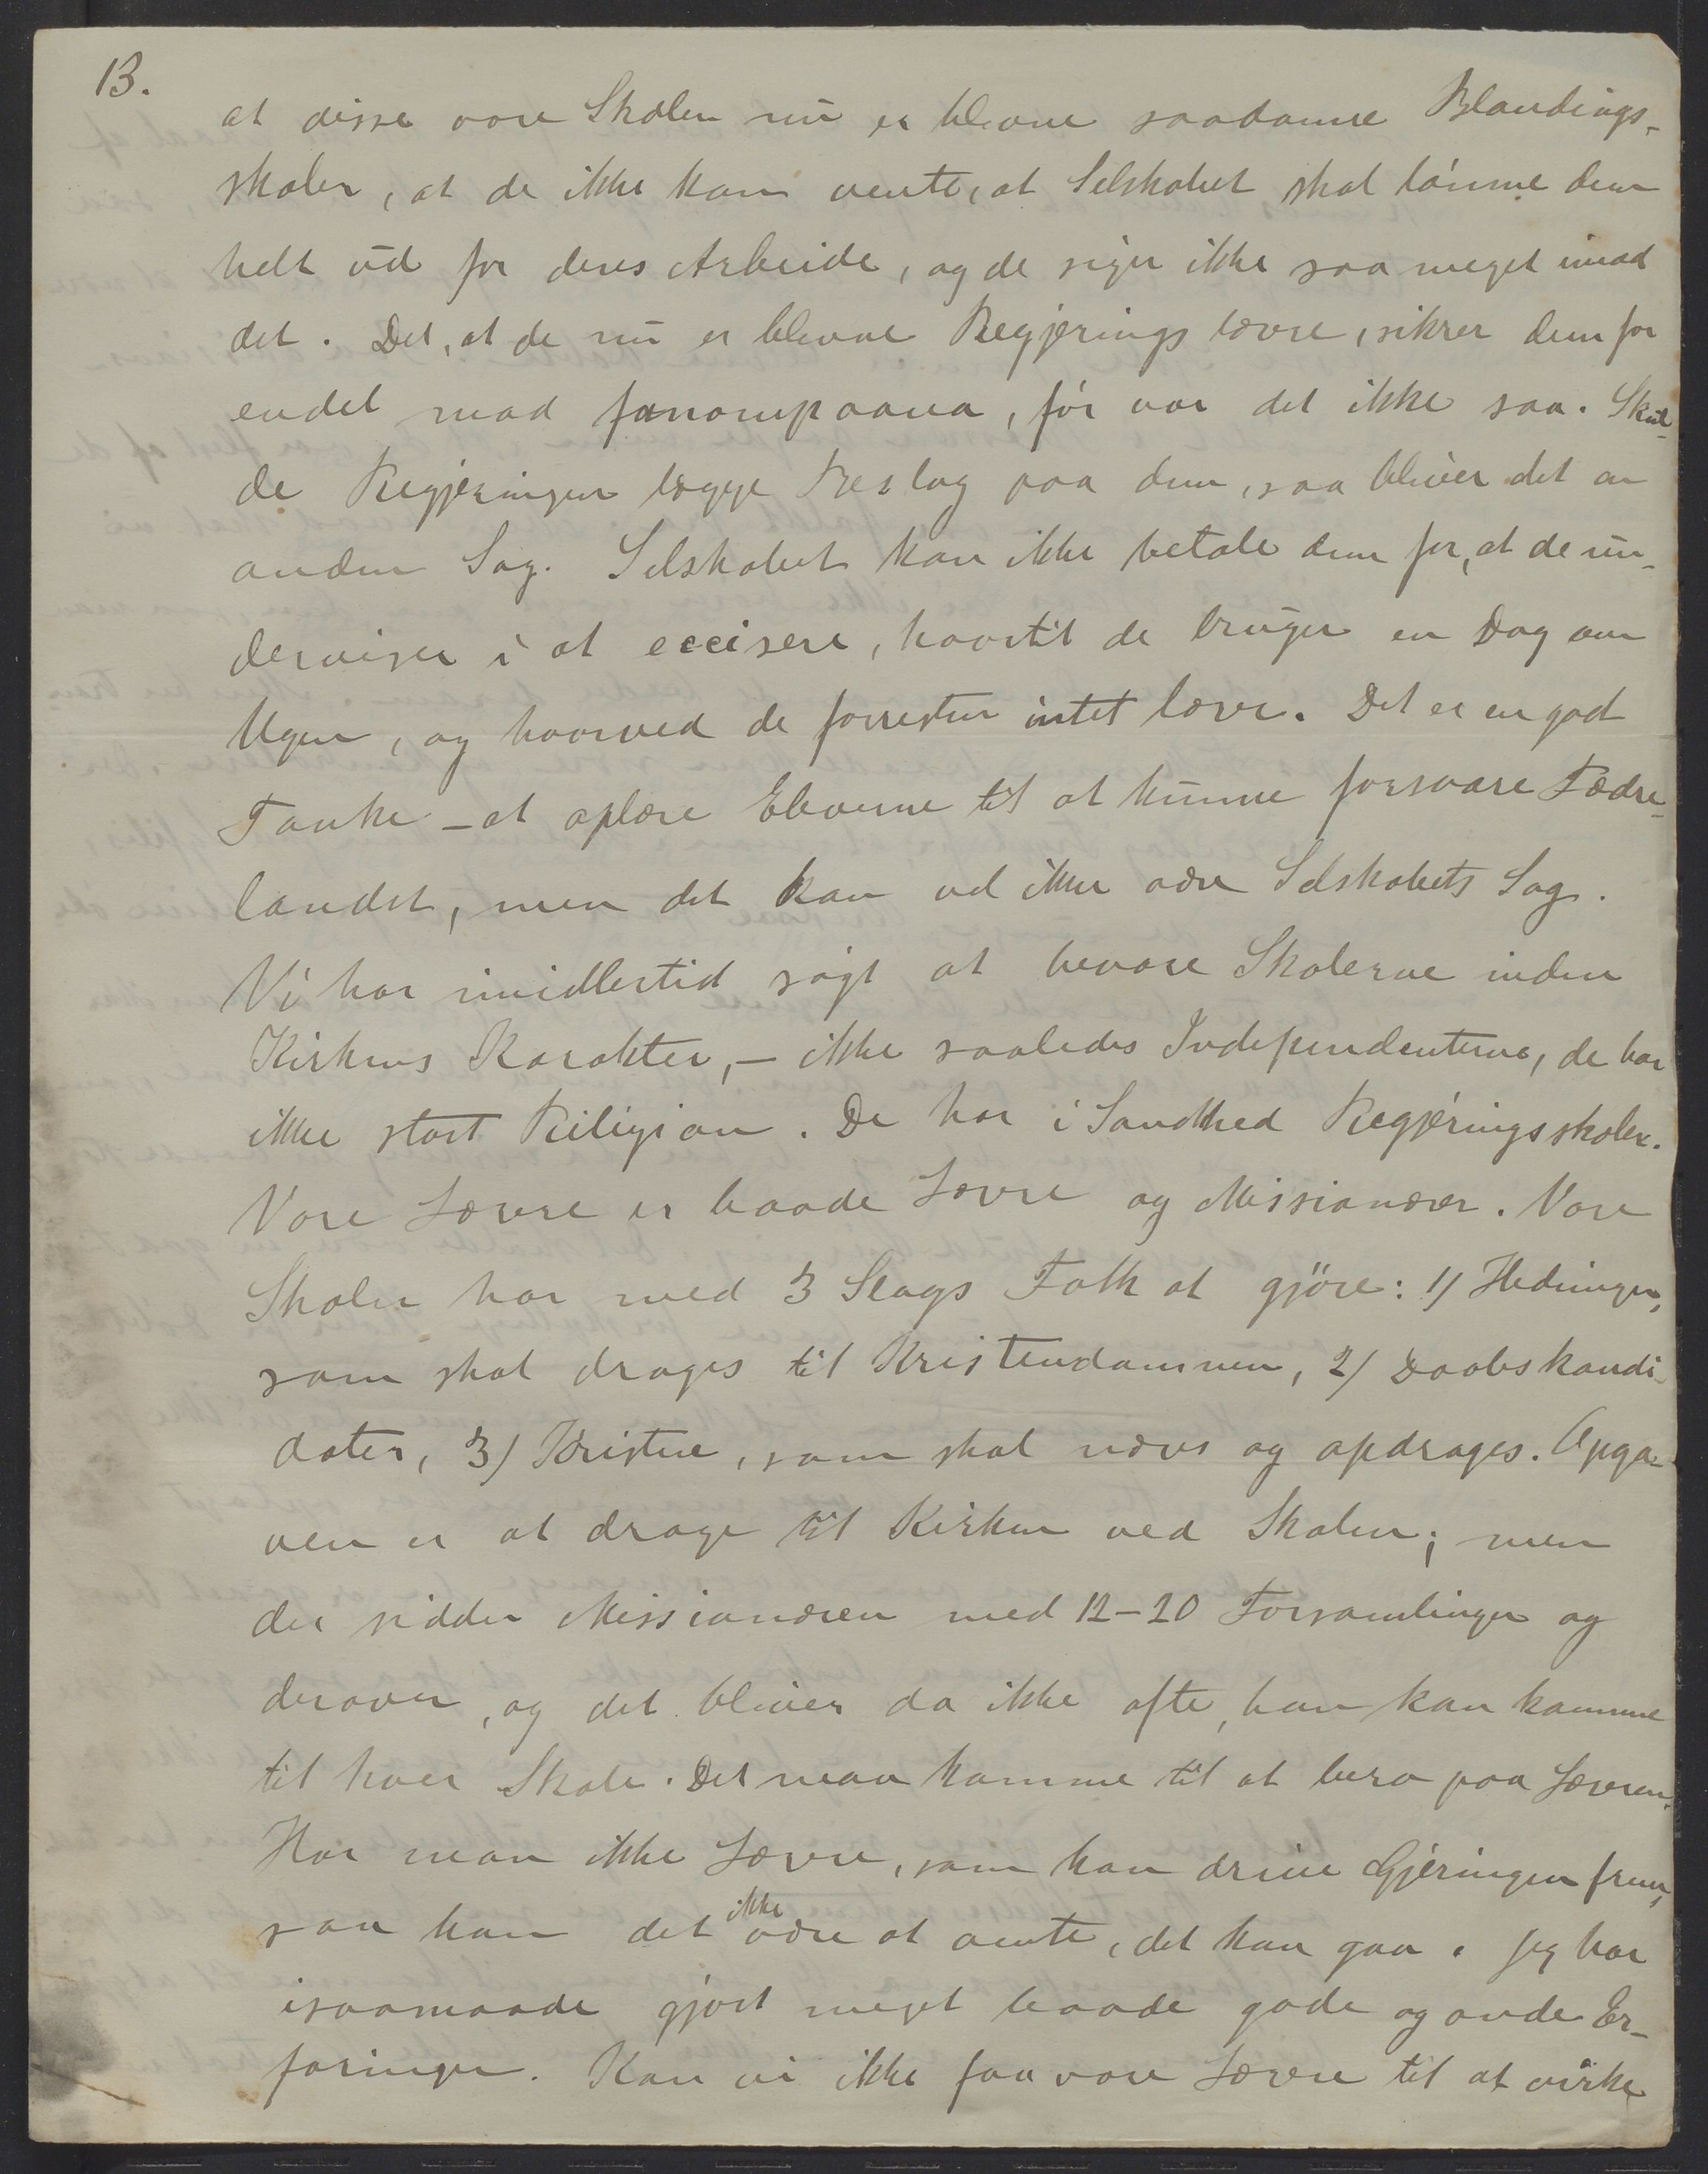 13.
at disse vore Skoler nu er blevne saadanne Blandings-
skoler, at de ikke kan vente, at Selskabet skal lønne dem
helt ud for deres Arbeide, og de siger ikke saa meget imod
det. Det, at de nu er blevne Regjeringslærere, sikrer dem for
endel mod fanompoana, før var det ikke saa. Skul-
de Regjeringen lægge Beslag paa dem, saa bliver det en
anden Sag. Selskabet kan ikke betale dem for, at de un-
derviser i at eccisere, hvortil de bruger en Dag om
Ugen, og hvorved de forresten intet lærer. Det er en god
Tanke – at oplære Eleverne til at kunne forsvare Fædre-
landet, men det kan vel ikke være Selskabets Sag.
Vi har imidlertid søgt at bevare Skolerne inden
Kirkens Karakter, – ikke saaledes Independenterne, de har
ikke stort Religion. De har i Sandhed Regjeringsskoler.
Vore Lærere er baade Lærere og Missionærer. Vore
Skoler har med 3 Slags Folk at gjöre: 1/ Hedninger,
som skal drages til Kristendommen, 2/ Daabskandi-
dater, 3/ Kristne, som skal næres og opdrages. Opga-
ven er at drage til Kirken ved Skolen; men
der sidder Missionæren med 12–20 Forsamlinger og
derover, og det bliver da ikke ofte, han kan komme
til hver Skole. Det maa komme til at bero paa Læreren.
Har man ikke Lærere, som kan drive Gjerningen frem,
saa kan det ikke være at vente, det kan gaa. Jeg har
isaamaade gjort meget baade gode og onde Er-
faringer. Kan vi ikke faa vore Lærere til at virke